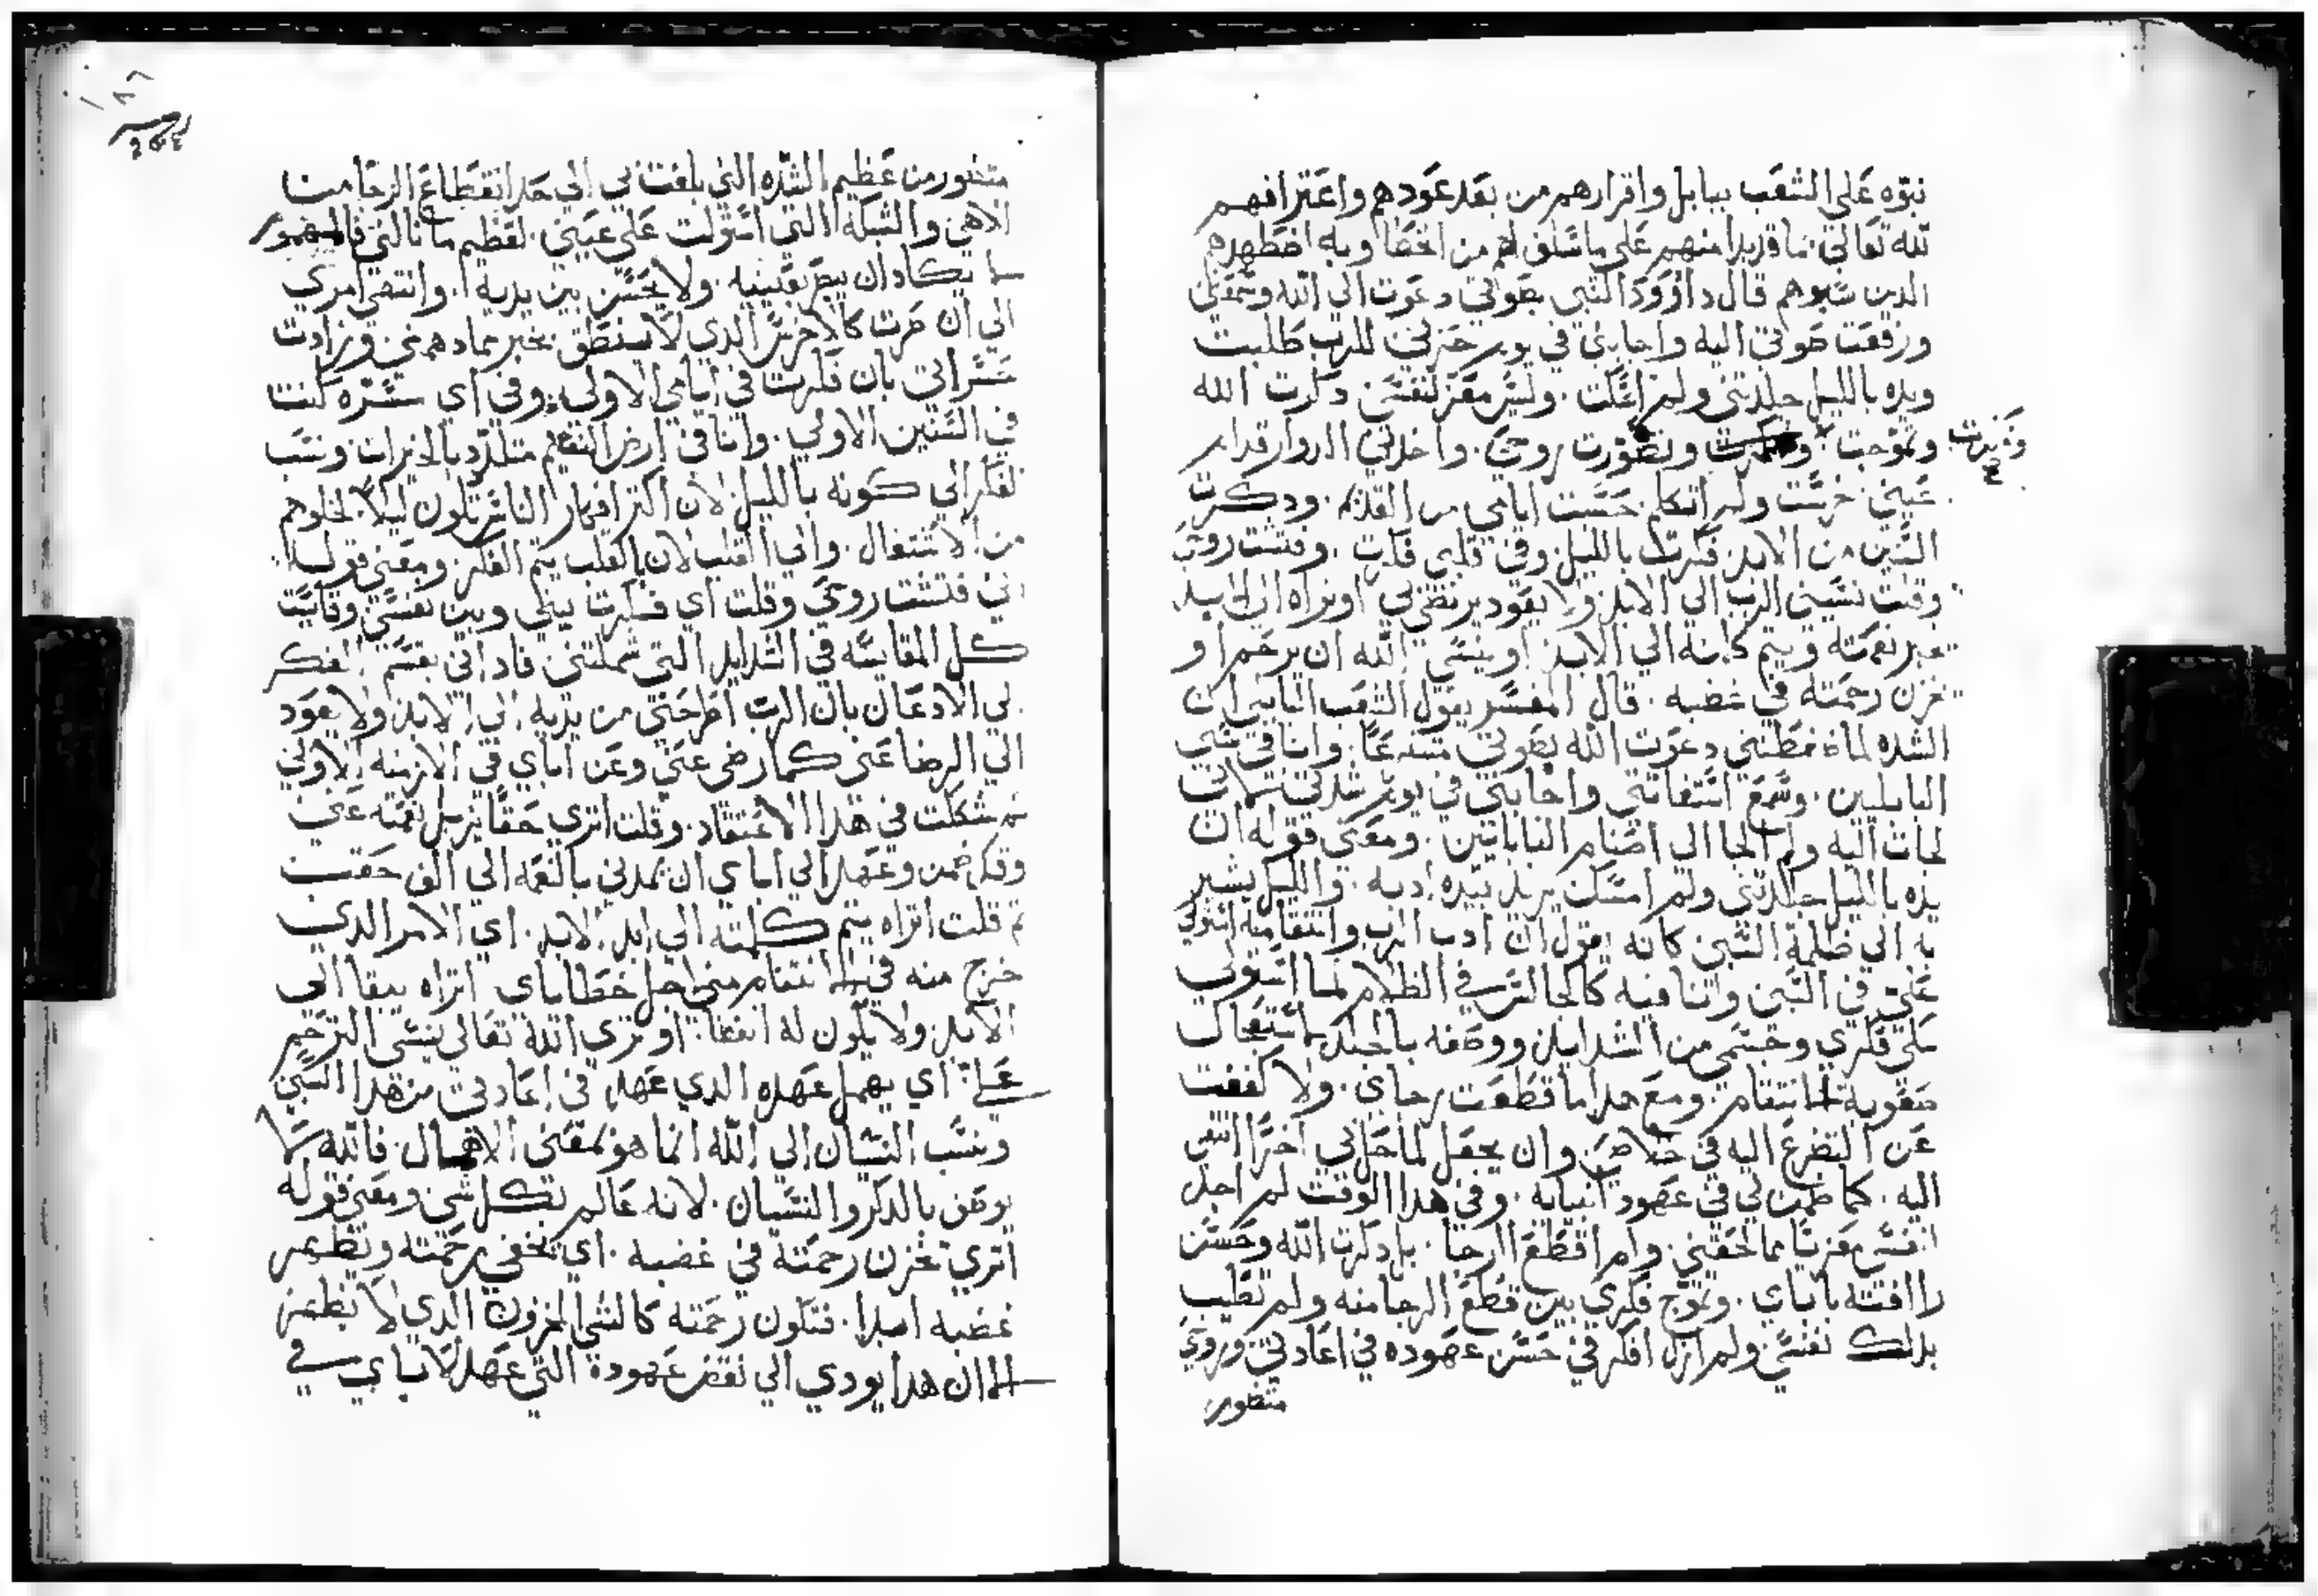 نبوه علي الشعب ببابل واقرارهم من بعد عودهم واعترافهم
لله تعالي بما قد بدا منهم علي ما سلف لهم من الخطا وبه اضطهدهم
الدين سبوهم قال داوود النبي بصوتي دعوت الي الله وسمعني
ورفعت صوتي اليه واجابني في يوم حزني للرب طلبت
ويده بالليل جلدتني ولم امسك . وليس معز لنفسي دكرت الله
وتموجت . وتضورت روحي . واخدني الدوار قدام
وفكرت
عيني . خرست ولم اتكلم . حسبت ايامي من القديم . ودكرت
السنين من الابد فكرت بالليل وفي قلبي فكرت . وفتشت روحي
وقلت نسيني الرب الي الابد ولا يعود يرتضي بي او تراه الي الابد
يعبر نعمته ويتم كلمته الي الابد او ينسي الله ان يرحم او
يخزن رحمته في غضبه . قال المفسر يقول الشعب التايب ان
الشده لما ضغطتني دعوت الله بصوتي متضرعا . وانا في سبي
البابليين . وسمع استغاثتي واجابني في يوم شدتي لانني
لجات اليه ولم الجا الي اصنام البابليين . ومعني قوله ان
يده بالليل جلدتني ولم امسك يريد بيده ادبه . والليل يشير
به الي ظلمة السبي كانه يقول ان ادب الرب وانتقامه استولي
علي في السبي وانا فيه كالجالس في الظلام لما استولي
علي فكري وجسمي من الشدايد ووصفه بالجلد لاستعجال
صعوبة الانتقام . ومع هدا ما قطعت رجاي . ولا كففت
عن التضرع اليه في خلاصي وان يجعل لما حل بي اخرا انتهي
اليه . كما ضمن لي في عهود انبيايه . وفي هدا الوقت لم اجد
لنفسي معزيا مما لحقني . ولم اقطع الرجا . بل دكرت الله وحسن
رافته باباي . وتموج فكري بين قطع الرجا منه ولم تطيب
بدلك نفسي ولم ازل افكر في حسن عهوده في اعادتي وروحي
متضور
متضور من عظيم الشده التي بلغت بي الي حد انقطاع الرجا من
الاهي والشبكه التي استولت علي عيني . لعظيم ما نالني فالمبهور
لا يكاد ان يبصر بعينيه . ولا يحس بين يديه . وانتهي امري
الي ان صرت كالاخرس الدي لا ينطق بخبر عما دهمني وزادت
حسراتي بان فكرت في ايامي الاولي . وفي اي مسره كنت
في السنين الاولي . وانا في ارض النعيم متلدد بالخيرات ونسب
الفكر الي كونه بالليل لان اكثر افكار الناس تكون ليلا لخلوهم
من الاشتغال . والي القلب لان بالقلب يتم الفكر . ومعني قوله
اني فتشت روحي وقلت اي فكرت بيني وبين نفسي وقايست
كل المقايسه في الشدايد التي شملتني فاداني بعسم الفكر
لي الادعان بان الرب اطرحني من يديه الي الابد ولا يعود
الي الرضا عني كما رضي عني وعن اباي في الازمنه الاولي
ثم شككت في هدا الاعتقاد . وقلت اتري حقا يزيل نعمته عني
وقد ضمن وعهد الي اباي ان يمدني بالنعمه الي الف حقب
ثم قلت اتراه يتم كلمته الي ابد الابد . اي الامر الدي
خرج منه في الانتقام مني اجل خطاياي اتراه يبقا الي
الابد ولا يكون له انقضا . او تري الله تعالي ينسي الترحم
علي اي يهمل عهده الدي عهد في اعادتي من هدا السبي
ونسب النسيان الي الله انما هو بمعني الاهمال . فالله لا
يوصف بالدكر والنسيان . لانه عالم بكل شي ومعني قوله
اتري يخزن رحمته في غضبه . اي يخفي رحمته ويظهر
غضبه ابدا . فتكون رحمته كالشي المخزون الدي لا يظهر
الا ان هدا يودي الي نقض عهوده التي عهد لاباي في